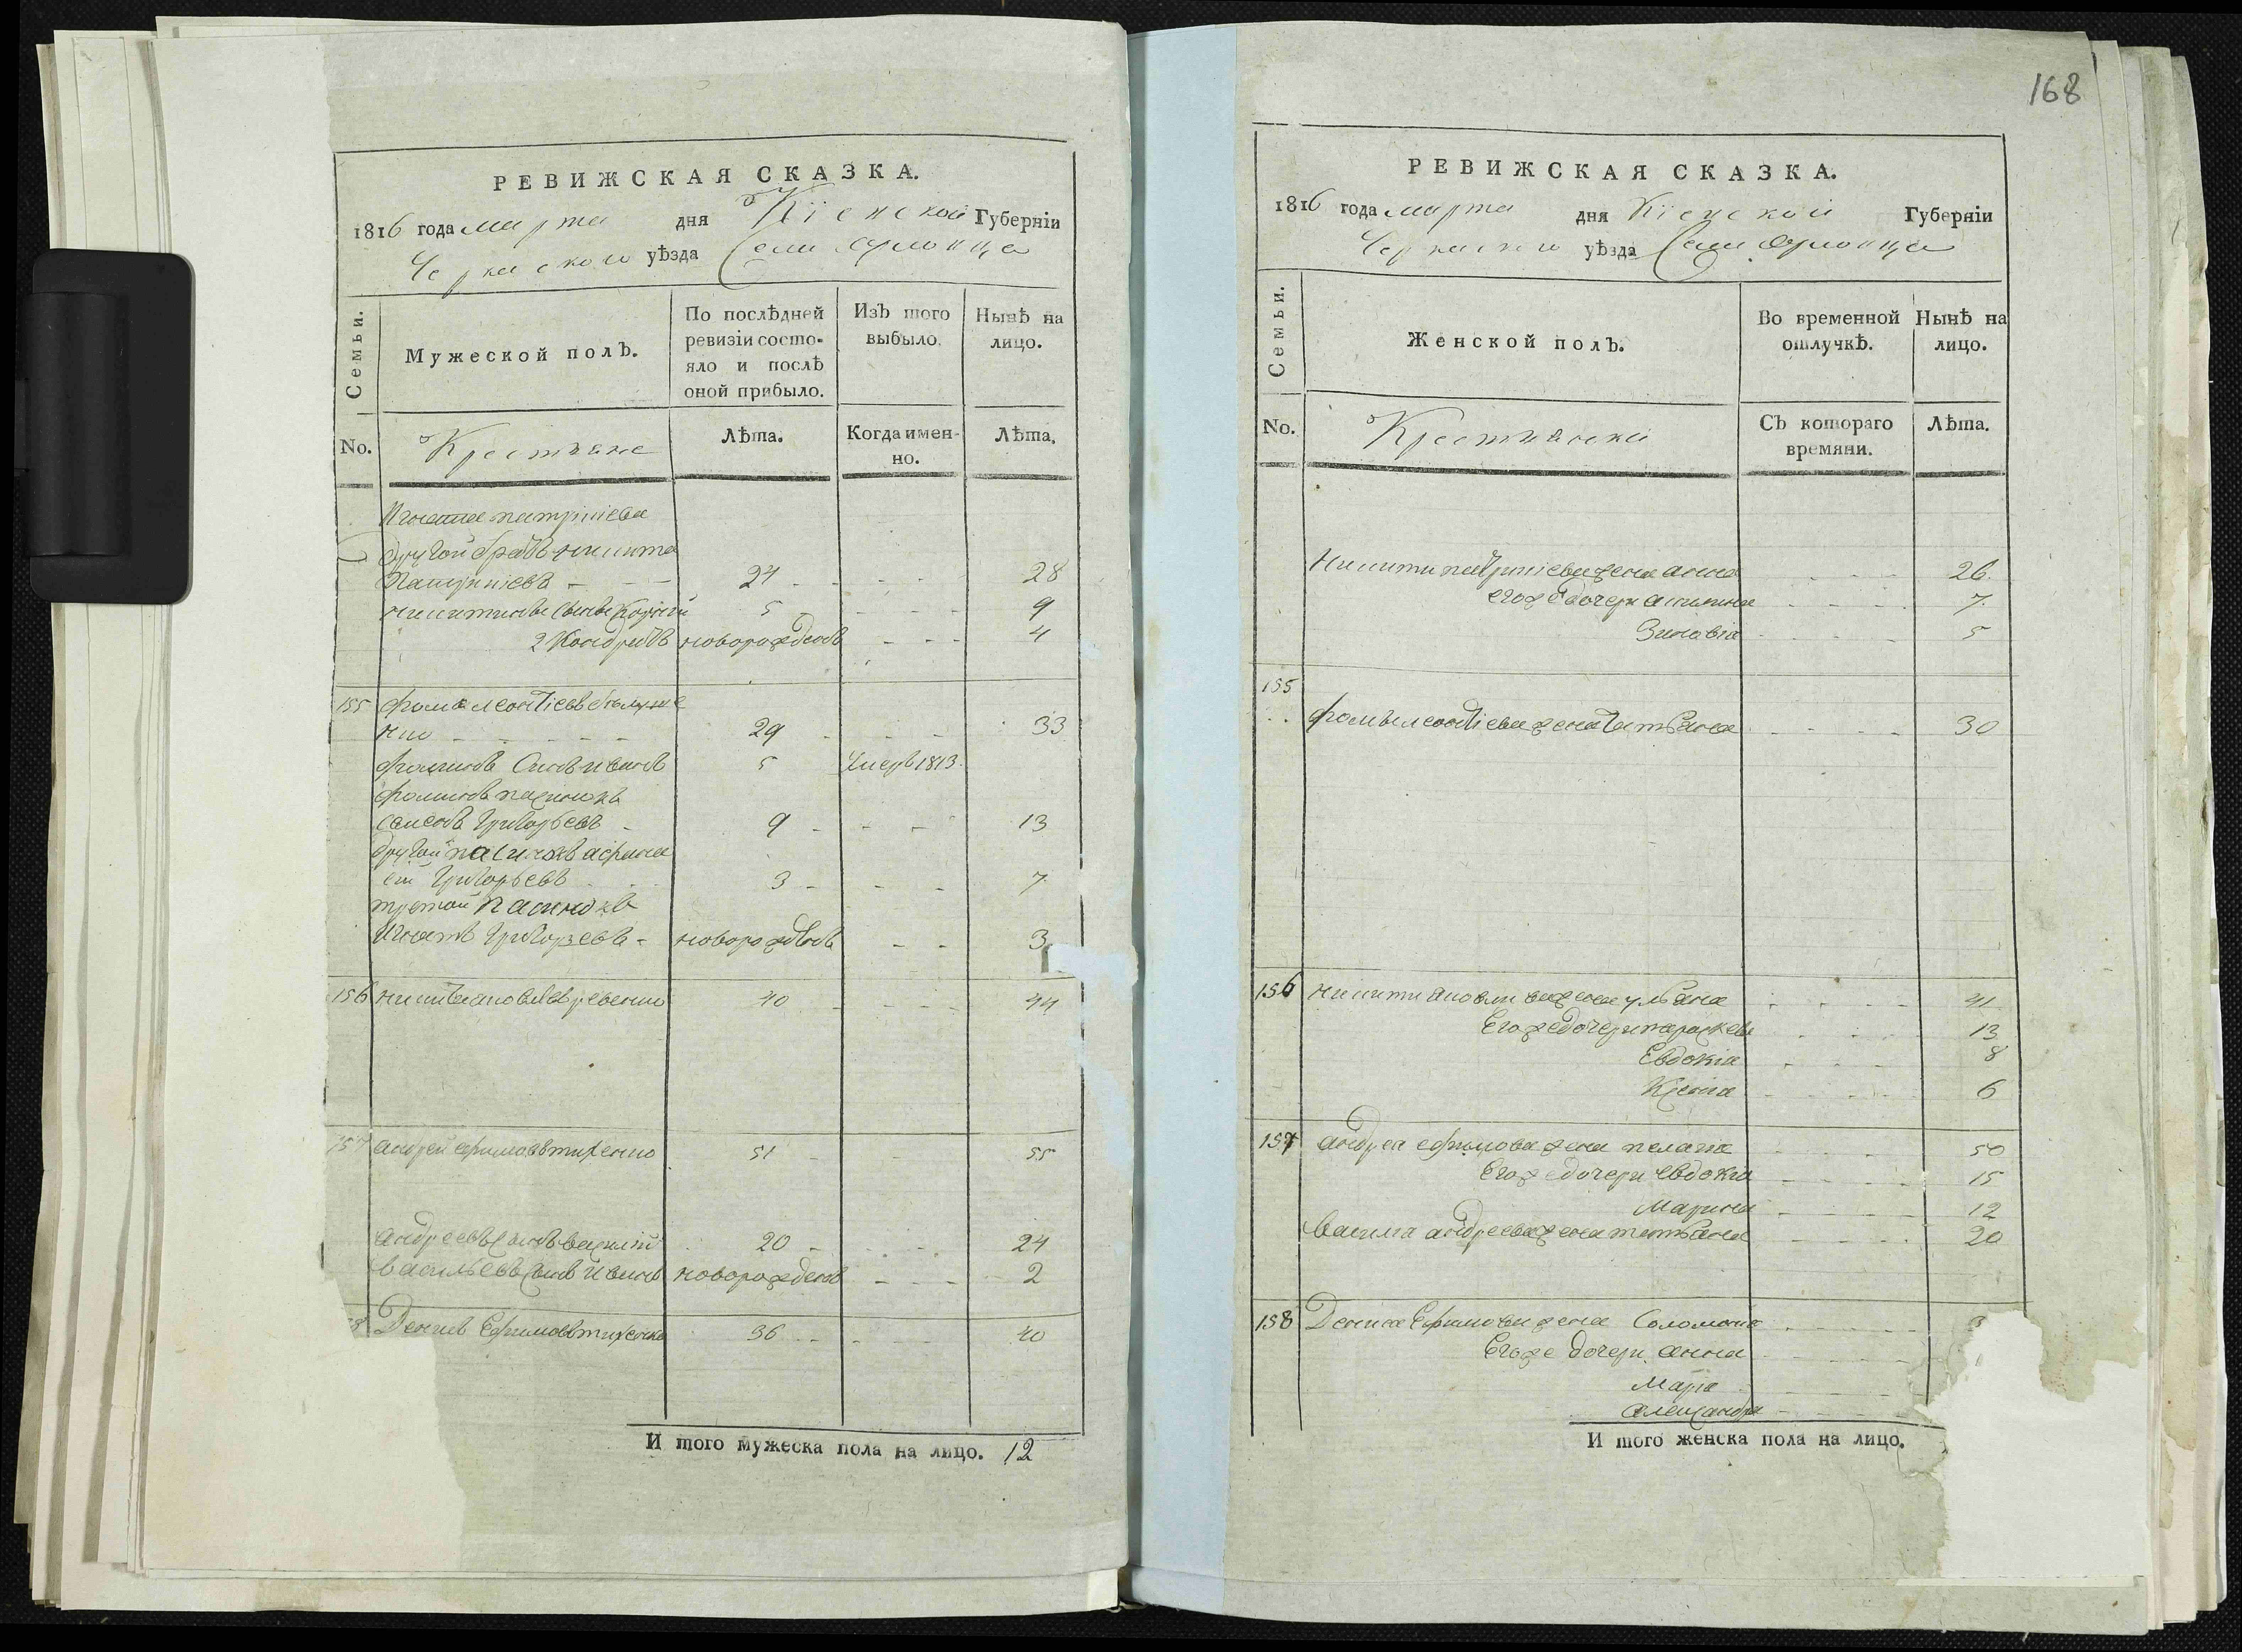 РЕВИЖСКАЯ СКАЗКА.
1816 года марта дня Кіевской Губерніи
Черкаского уѣзда Села
Семьи.
Мужеской полъ.
По послѣдней ревизіи состояло и послѣ оной прибыло.
Изъ того выбыло.
Нынѣ на лицо.
No.
Крестьяне
Лѣта.
Когда именно.
Лѣта.
Игната
другой братъ никита
24 28
никитины сыны Корній 5 9
2 Кондратъ новорожденъ 4
155 фома леонтіевъ
29 33
фоминъ Синъ иванъ 5 Умеръ 1813
фоминъ пасинокъ
Григорьевъ 9 13
другой пасинокъ афана
сій Григорьевъ 3 7
третой пасинокъ
Игнатъ Григорьевъ новорожденъ 3
156 никита 40 44
157 андрей ефимовъ тихенко 51 55
андреевъ сынъ василій 20 24
васильевъ сынъ иванъ новорожденъ 2
8 Денисъ Ефимовъ тихенко 36 40
И того мужеска пола на лицо. 12
168
РЕВИЖСКАЯ СКАЗКА.
1816 года марта дня Кіевской Губерніи
Черкаского уѣзда Села
Семьи.
Женской полъ.
Во временной отлучкѣ.
Нынѣ на лицо.
No.
Крестьянки
Съ котораго времяни.
Лѣта.
Никиты жена анна 26
егоже дочери 7
Зиновіа 5
155
фомы леонтіева жена татьяна 30
156 никиты жена ульяна 41
Егоже дочери параскева 13
Евдокіа 8
Ксенія 6
157 андрея ефимова жена пелагія 50
Егоже дочери евдокіа 15
Марина 12
василія андреева жена татьяна 20
158 Дениса Ефимова жена Соломонія 3
Егоже дочери анна
Маріа
александра
И того женска пола на лицо.